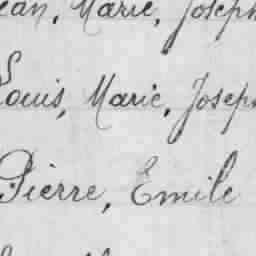 ean, Marie, Joseph
Louis, Marie, Joseph
Pierre, Emile